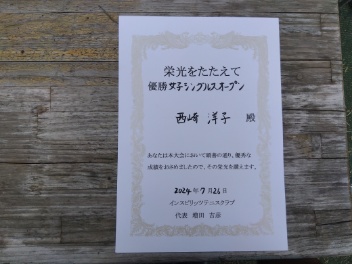 栄光をたたえて
優勝 女子シングルスオープン
西崎 洋子 殿
あなたは本大会において頭書の通り、優秀な
成績をおさめましたので、その栄光を讃えます。
2024年7月26日
インスピリッツテニスクラブ
代表 増田 吉彦